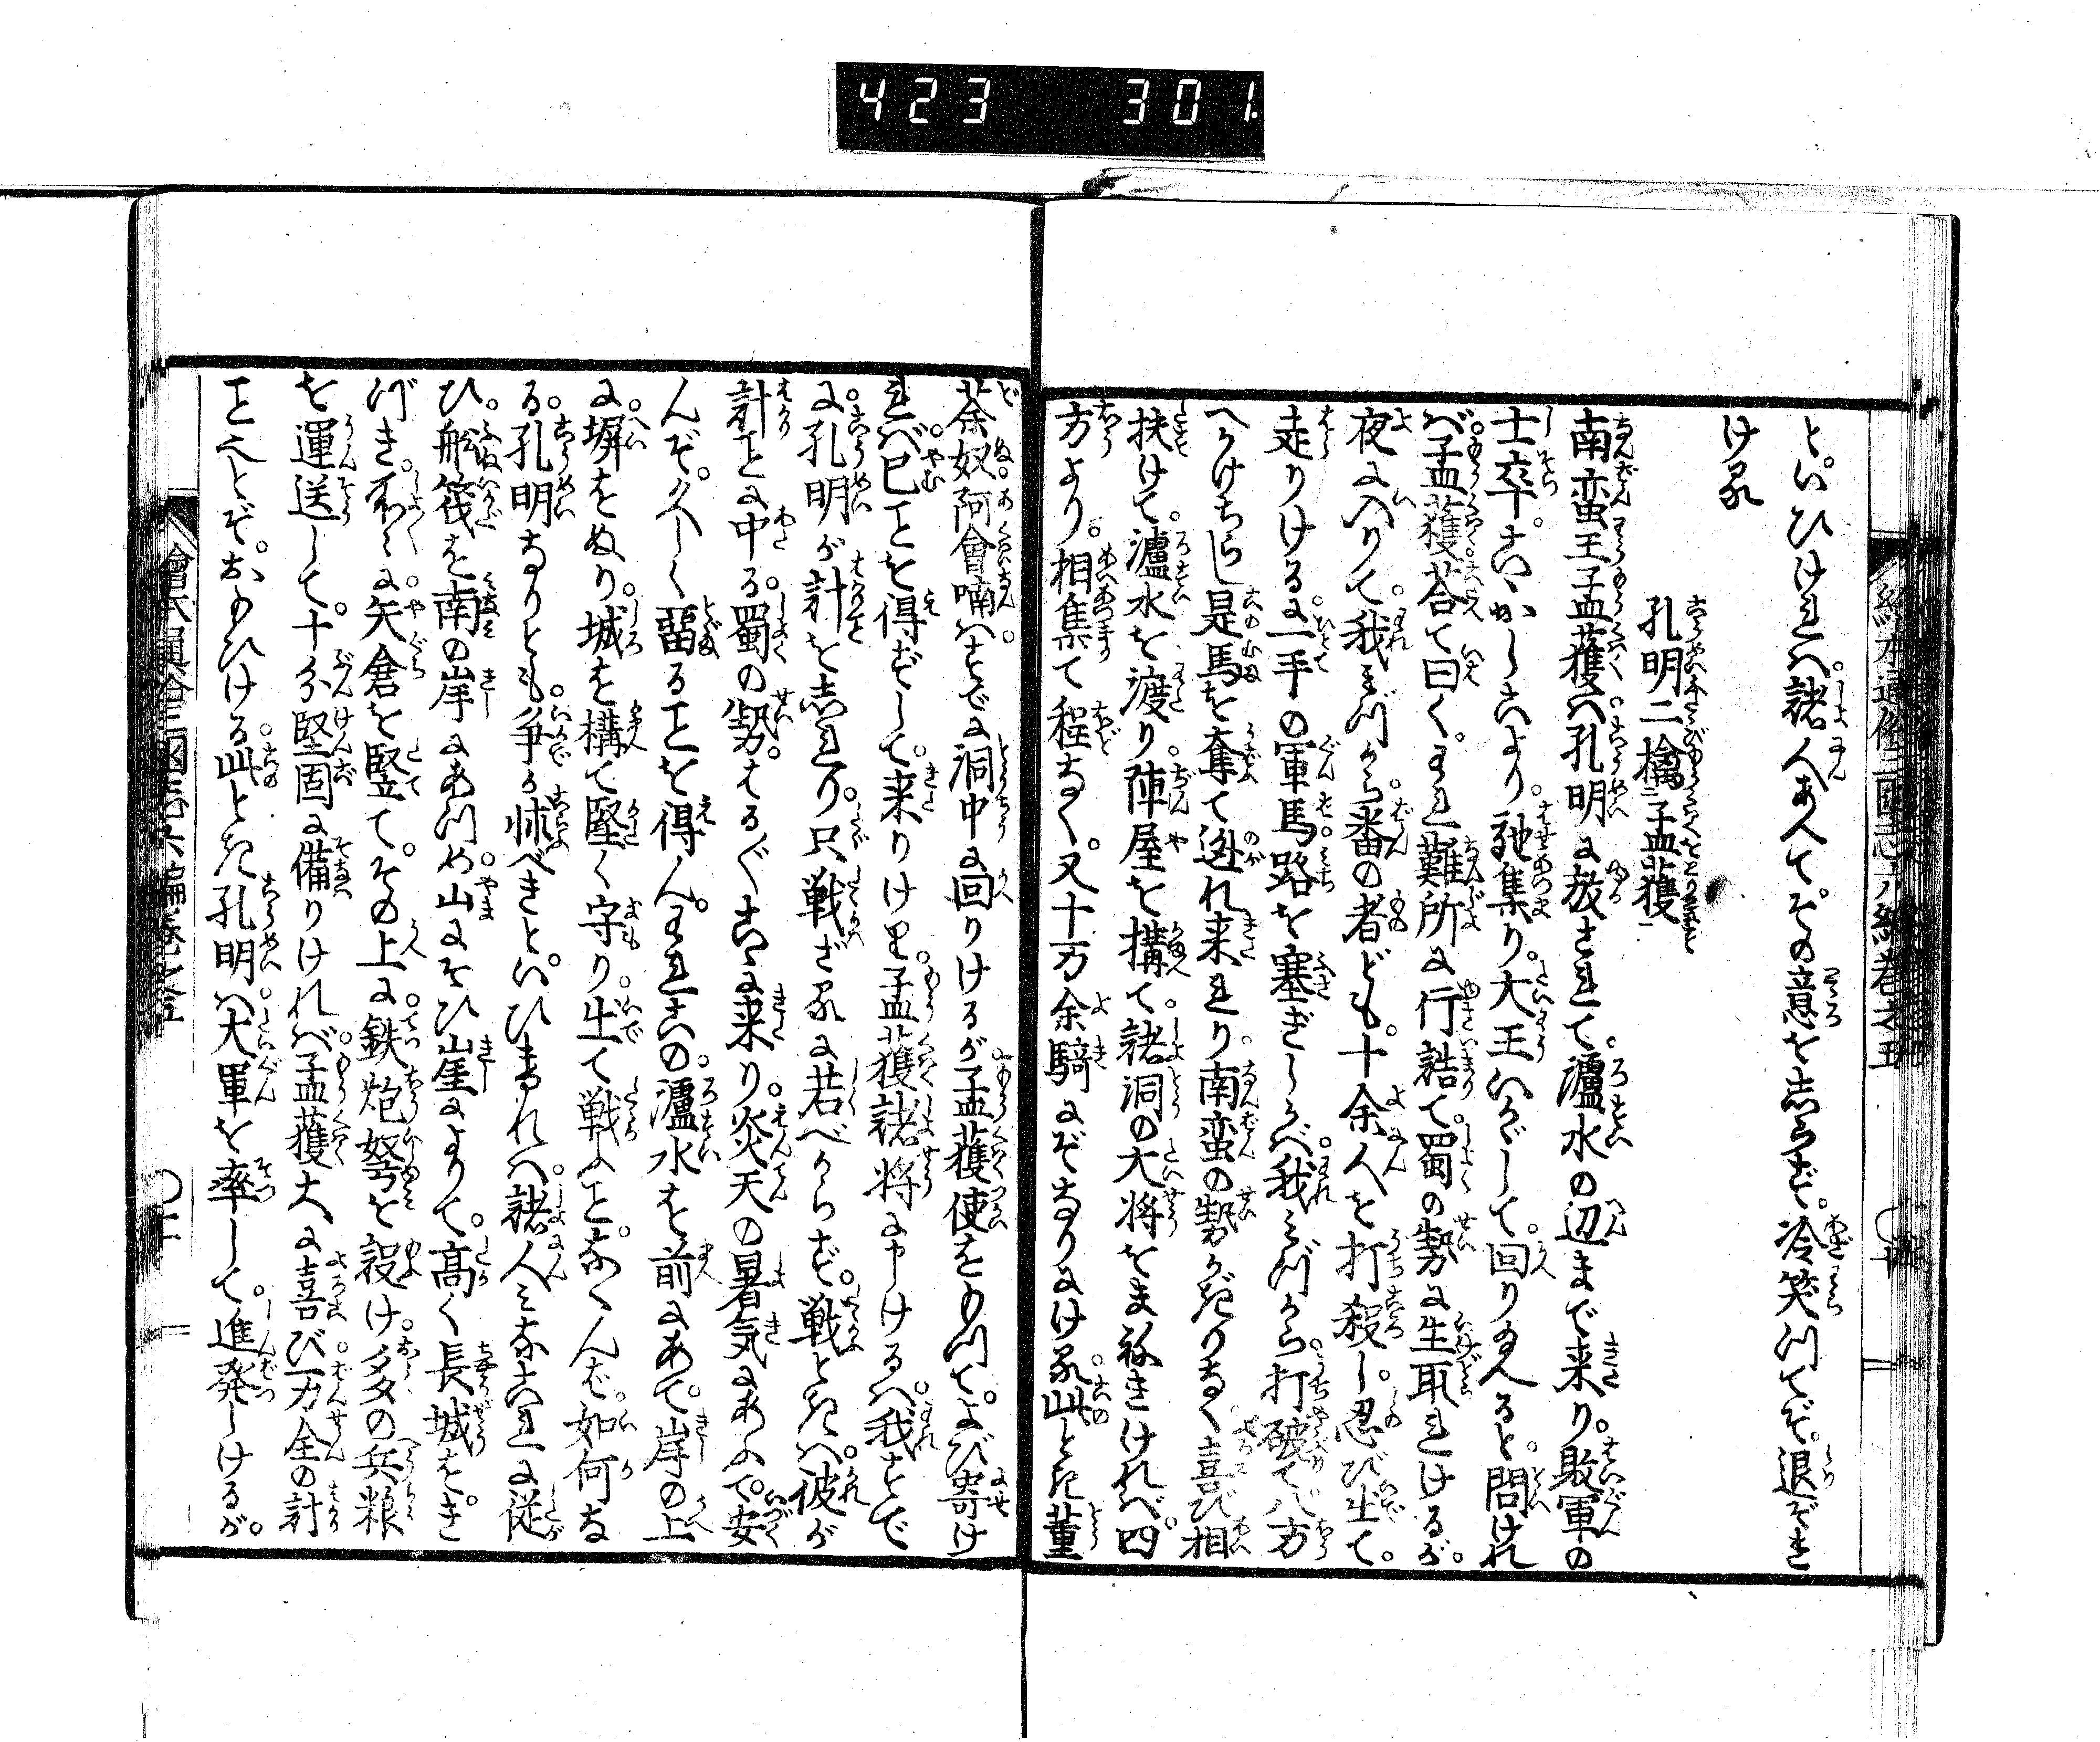 423 301
繪本通俗三國志六編卷之五
といひけれバ。諸人あへてその意をしらず。冷笑つてぞ。退ぞき
ける
孔明二擒孟獲
南蛮王孟獲ハ。孔明に放されて。瀘水の辺まで来り。敗軍の
士卒。こゝかしこより。馳集り。大王いかゞして。回り玉へると。問けれ
バ。孟獲荅て曰く。われ難所に行詰て。蜀の勢に生取れけるが。
夜に入りて。我ミづから。番の者ども。十余人を打殺し。忍び出て。
走りける に。一手の軍馬。路を塞ぎしかバ。我ミづから。打破て八方
へかけちらし是馬を奪て逃れ来れり南蛮の勢かぎりなく喜び相
扶けて。瀘水を渡り。陣屋を構て。諸洞の大将をまねきけれバ。四
方より。相集て程なく。又十万余騎にぞなりにける。此とき董
荼奴。阿會喃ハすでに洞中に回りけるが。孟獲使をもつて。よび寄け
れバ。已ことを得ずして。来りけり。孟獲諸将に申けるハ。我すで
に。孔明が計を知れり。只戦ざるに若べからず。戦ときハ。彼が
計ことに中る。蜀の勢。はる〴〵こゝに来り。炎天の暑気にあふて。安
んぞ。久しく留ることを得ん。われこの。瀘水を前にあて。岸の上
に。塀をぬり。城を構て堅く守り。出て戦ふことなくんバ。如何な
る。孔明なりとも。争か怵べきと。いひければ。諸人ミなこれに従
ひ。舩筏を南の岸にあつめ。山にそひ崖によりて。高く長城をき
づき。わく〳〵に。矢倉を竪て。その上に。鉄炮弩を設け。多の兵粮
を運送して。十分堅固に備りけれバ。孟獲大に喜び。万全の計
ことゝぞ。おもひける。此とき孔明ハ。大軍を率して。進発しけるが。
繪本通俗三國志六編卷之五